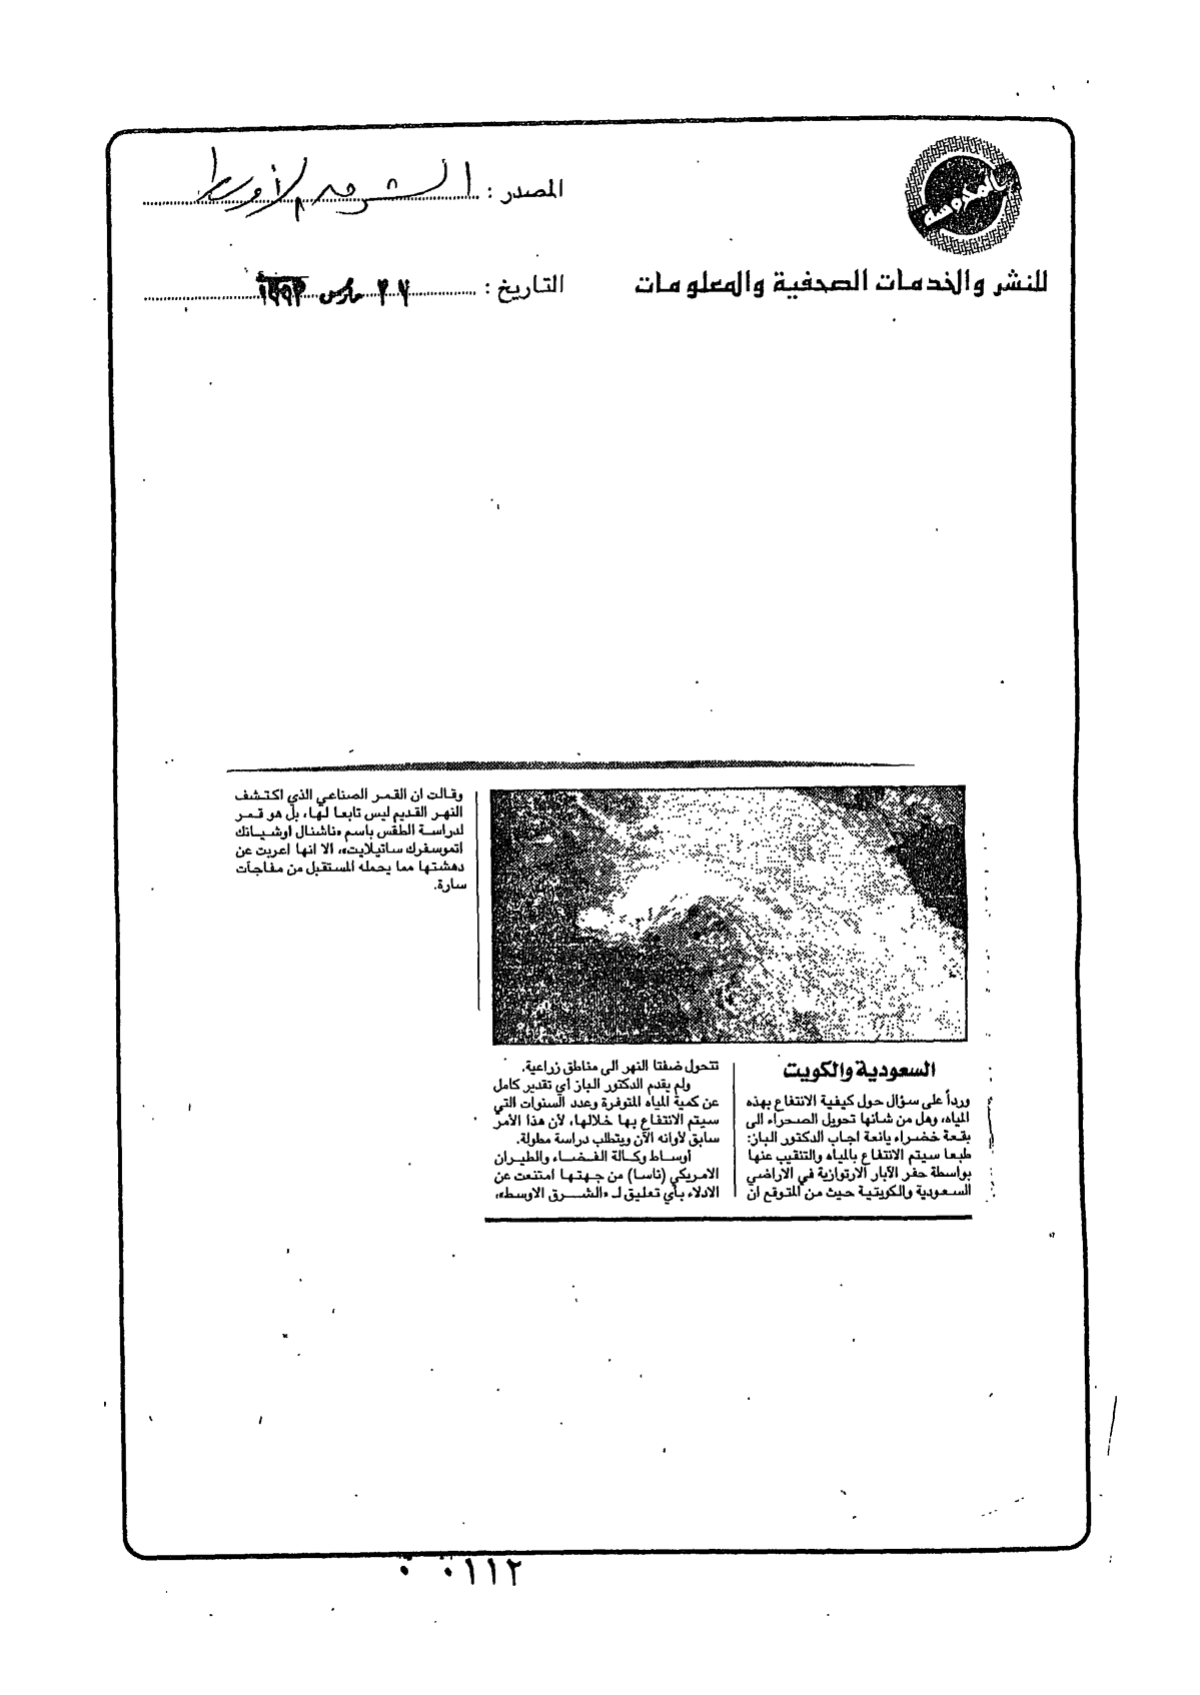 المصدر : الشرق الأوسط
للنشر والخدمات الصحفية والمعلومات
التاريخ : ٢٧ مارس ١٩٩٣
السعودية والكويت
ورداً على سؤال حول كيفية الانتفاع بهذه
المياه، وهل من شانها تحويل الصحراء الى
بقعة خضراء يانعة اجاب الدكتور الباز:
طبعا سيتم الانتفاع بالمياه والتنقيب عنها
بواسطة حفر الآبار الارتوازية في الاراضي
السعودية والكويتية حيث من المتوقع ان
تتحول ضفتا النهر الى مناطق زراعية.
ولم يقدم الدكتور الباز أي تقدير كامل
عن كمية المياه المتوفرة وعدد السنوات التي
سيتم الانتفاع بها خلالها، لأن هذا الأمر
سابق لأوانه الآن ويتطلب دراسة مطولة.
أوساط وكالة الفضاء والطيران
الامريكي (ناسا) من جهتها امتنعت عن
الادلاء بأي تعليق لـ «الشرق الاوسط»،
وقالت ان القمر الصناعي الذي اكتشف
النهر القديم ليس تابعا لها، بل هو قمر
لدراسة الطقس باسم «ناشنال اوشيانك
اتموسفرك ساتيلايت»، الا انها اعربت عن
دهشتها مما يحمله المستقبل من مفاجآت
سارة.
٠٠١١٢